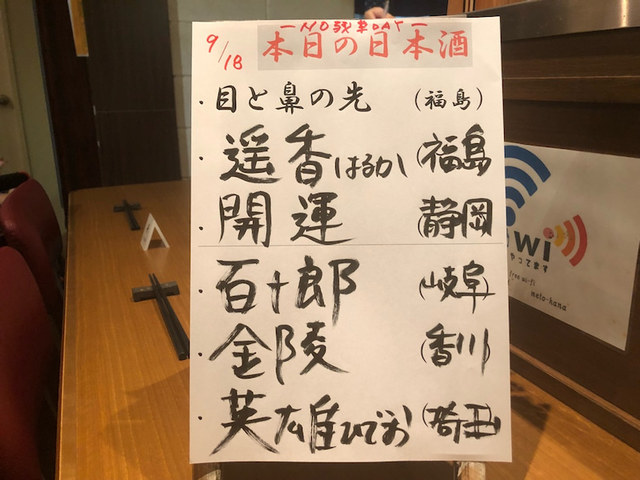 —NO残業DAY—
9/18 本日の日本酒
・目と鼻の先 (福島)
・遥香はるか (福島)
・開運 (静岡)
・百十郎 (岐阜)
・金陵 (香川)
・英雄ひでお (埼玉)
wi
やってます
free wi-fi